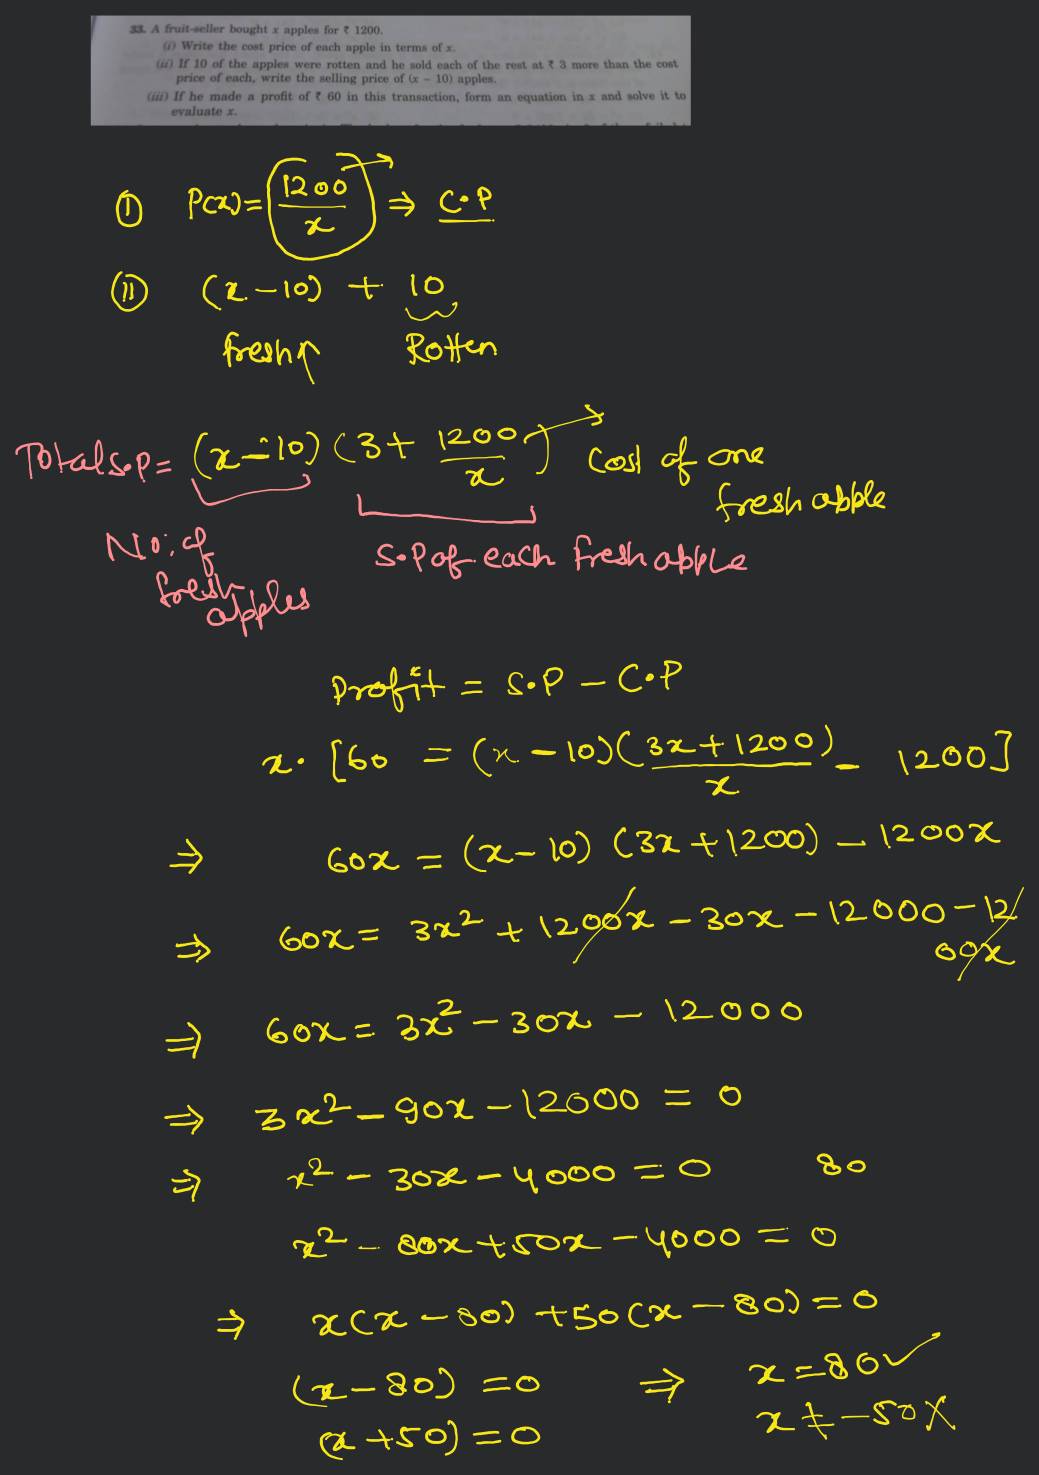 33. A fruit-seller bought x apples for ₹ 1200.
(i) Write the cost price of each apple in terms of x.
(ii) If 10 of the apples were rotten and he sold each of the rest at ₹ 3 more than the cost
price of each, write the selling price of (x – 10) apples.
(iii) If he made a profit of ₹ 60 in this transaction, form an equation in x and solve it to
evaluate x.
(I) P(x) = (1200/x) ⇒ C.P
(II) (x-10) + 10
fresh Rotten
Total S.P = (x-10) (3 + 1200/x) → Cost of one
fresh apple
No. of
fresh
apples
S.P of each fresh apple
Profit = S.P - C.P
x. [60 = (x-10)(3x+1200)/x - 1200]
⇒ 60x = (x-10) (3x+1200) - 1200x
⇒ 60x = 3x² + 1200x - 30x - 12000 - 12
00x
⇒ 60x = 3x² - 30x - 12000
⇒ 3x² - 90x - 12000 = 0
⇒ x² - 30x - 4000 = 0 80
x² - 80x + 50x - 4000 = 0
⇒ x(x-80) + 50(x-80) = 0
(x-80) = 0 ⇒ x = 80 ✓
(x+50) = 0 x ≠ -50 X